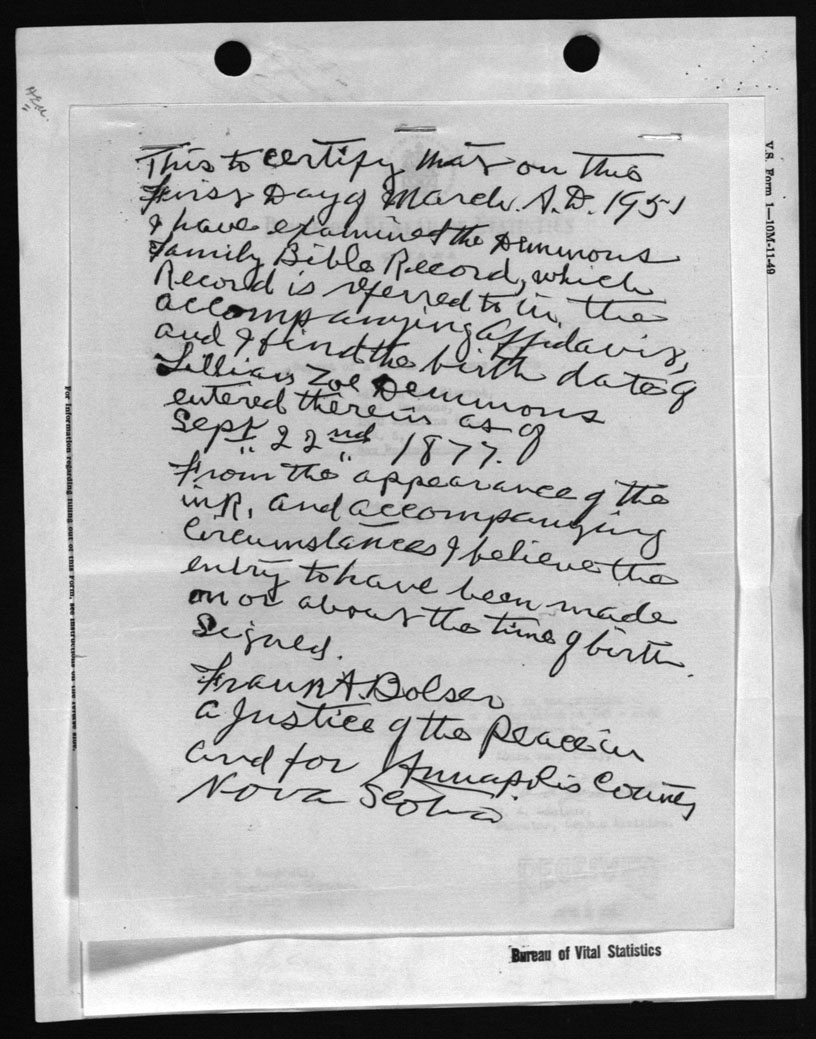 This to certify that on this
First Day of March A.D. 1951
I have examined the Demmons
Family Bible Record, which
Record is referred to in the
accompanying affidavit,
and I find the birth date of
Lillian Zoe Demmons
entered therein as of
Sept. "22nd" 1877.
From the appearance of the
ink, and accompanying
circumstances I believe the
entry to have been made
on or about the time of birth.
Signed.
Frank A. Bolser
a Justice of the Peace in
and for Annapolis County
Nova Scotia
V.S. Form 1—10M-11-49
For information regarding filling out of this Form, see instructions on the reverse side.
Bureau of Vital Statistics